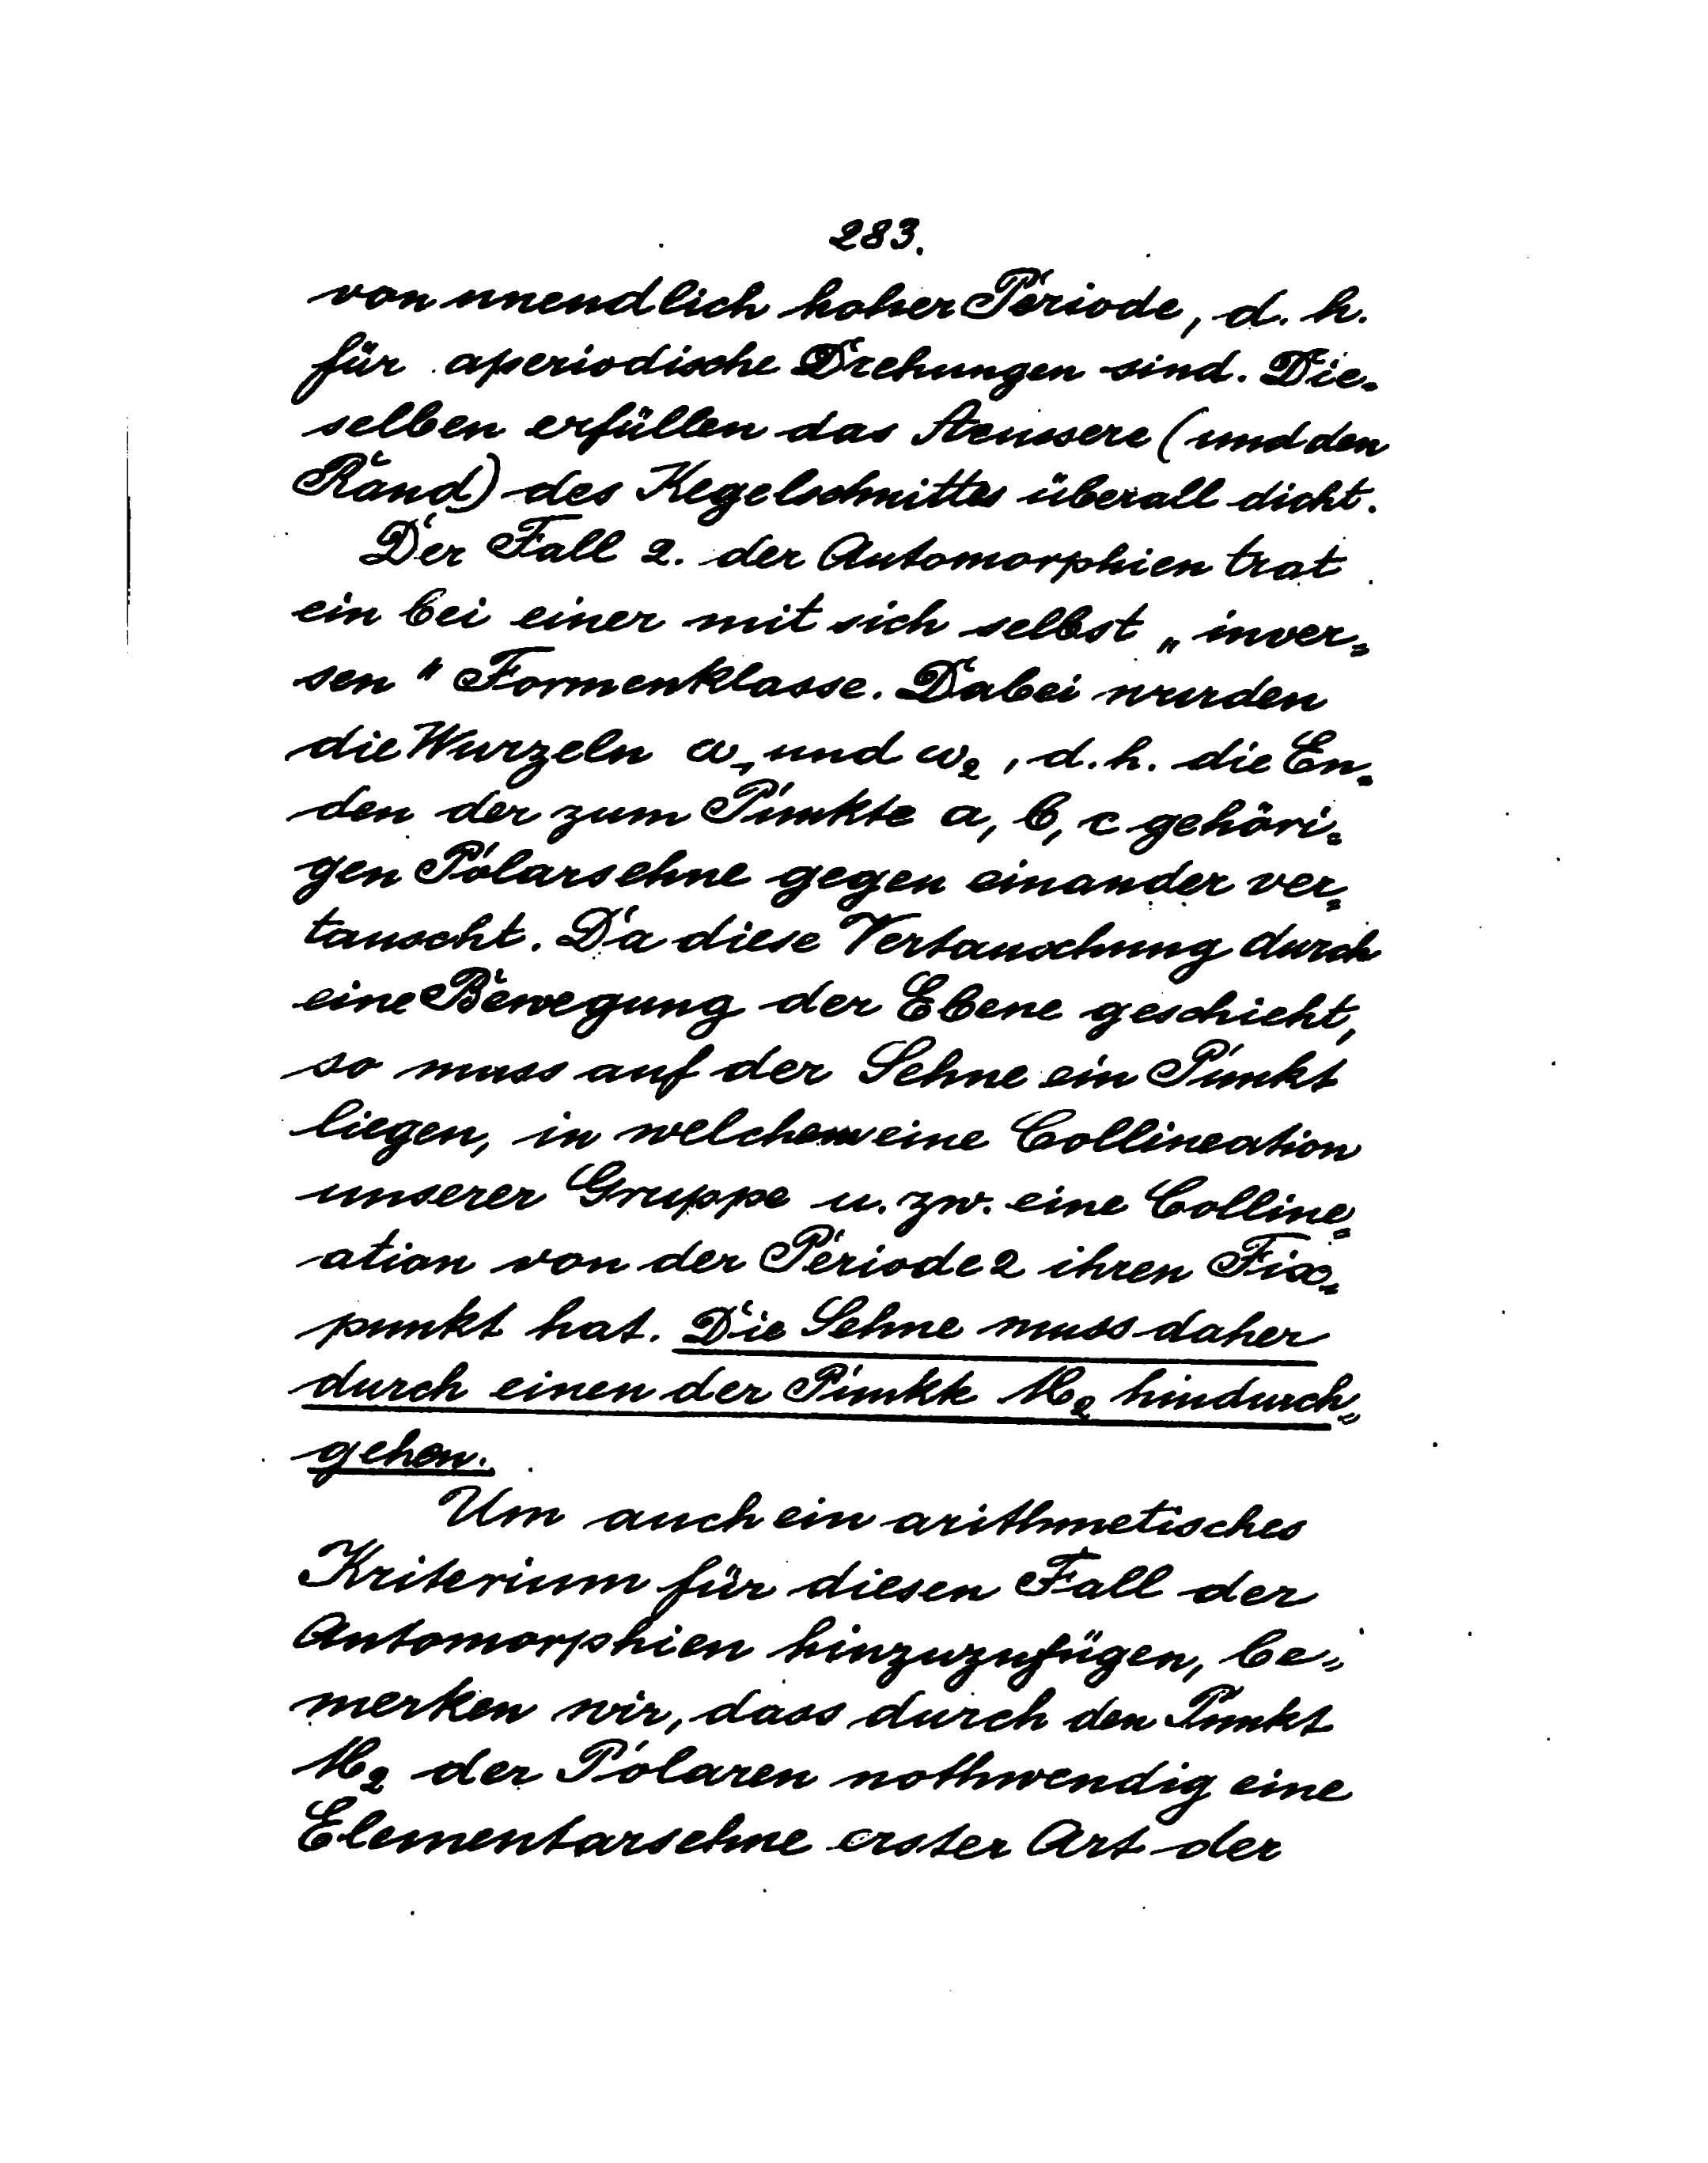 283.
von unendlich hoher Periode, d. h.
für aperiodische Drehungen sind. Die-
selben erfüllen das Aeussere (und den
Rand) des Kegelschnittes überall dicht.
Der Fall 2. der Automorphien trat
ein bei einer mit sich selbst „inver-
sen" Formenklasse. Dabei wurden
die Wurzeln ω₁ und ω₂, d. h. die En-
den der zum Punkte a, b, c gehöri-
gen Polarsehne gegen einander ver-
tauscht. Da diese Vertauschung durch
eine Bewegung der Ebene geschieht,
so muss auf der Sehne ein Punkt
liegen, in welchem eine Collineation
unserer Gruppe u. zw. eine Colline-
ation von der Periode 2 ihren Fix-
punkt hat. Die Sehne muss daher
durch einen der Punkte M₂ hindurch-
gehen.
Um auch ein arithmetisches
Kriterium für diesen Fall der
Automorphien hinzuzufügen, be-
merken wir, dass durch den Punkt
M₂ der Polaren nothwendig eine
Elementarsehne erster Art der